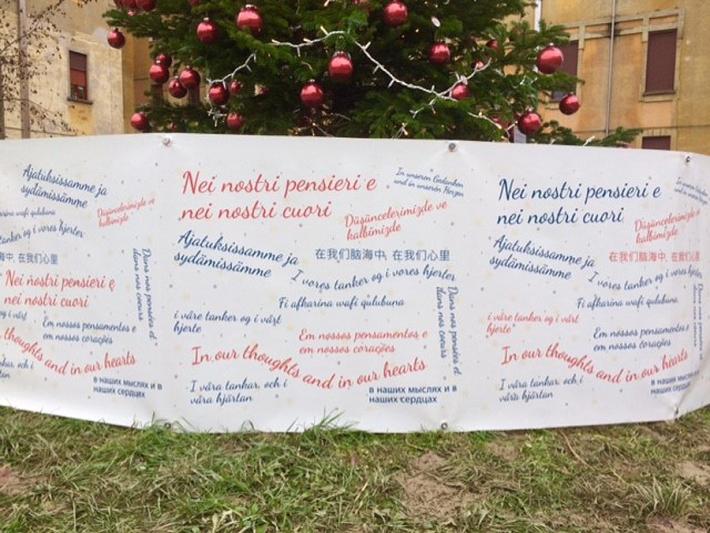 Ajatuksissamme ja
sydämissämme
Düşüncelerimizde ve
kalbimizde
afkarina wafi qulubuna
tanker og i vores hjerter
海中, 在我们心里
Dans nos pensées et
dans nos coeurs
Nei nostri pensieri e
nei nostri cuori
Em nossos pensamentos e
em nossos corações
thoughts and in our hearts
tankar, och i
в наших мыслях и в
наших сердцах
Nei nostri pensieri e
nei nostri cuori
In unseren Gedanken
und in unseren Herzen
Düşüncelerimizde ve
kalbimizde
Ajatuksissamme ja
sydämissämme
在我们脑海中, 在我们心里
I vores tanker og i vores hjerter
Fi afkarina wafi qulubuna
Dans nos pensées et
dans nos coeurs
i våre tanker og i vårt
hjerte
Em nossos pensamentos e
em nossos corações
In our thoughts and in our hearts
I våra tankar, och i
våra hjärtan
в наших мыслях и в
наших сердцах
Nei nostri pensieri e
nei nostri cuori
In unseren
und in unseren
Düşüncelerimizde
kalbimizde
Ajatuksissamme ja
sydämissämme
在我们脑海中, 在我们心里
I vores tanker og i vores hjerter
Fi afkarina wafi qulubuna
i våre tanker og i vårt
hjerte
Em nossos pensamentos e
em nossos corações
In our thoughts and in our hearts
I våra tankar, och i
våra hjärtan
в наших мыслях
наших сердцах